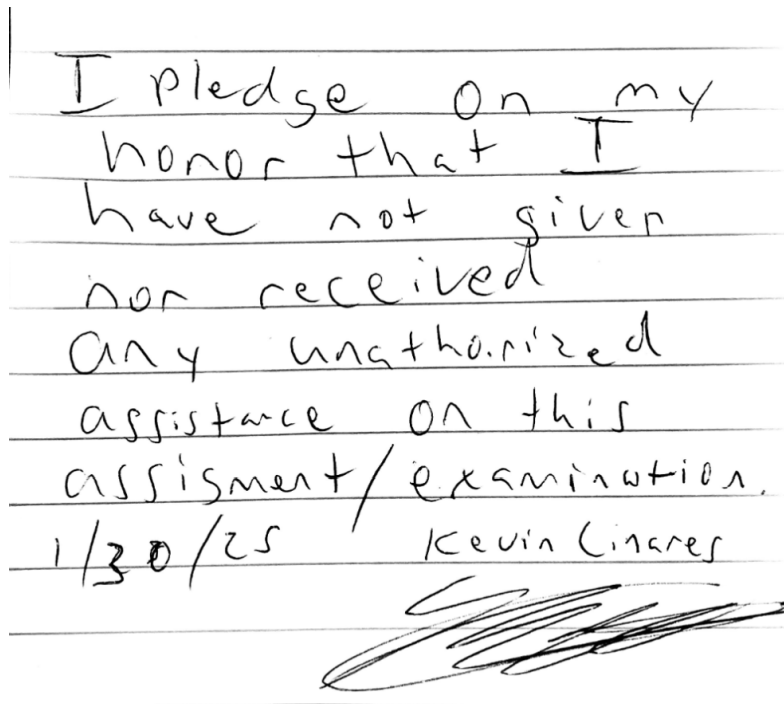 I pledge on my
honor that I
have not given
nor received
any unathorized
assistance on this
assisment/examination.
1/30/25 Kevin Linares